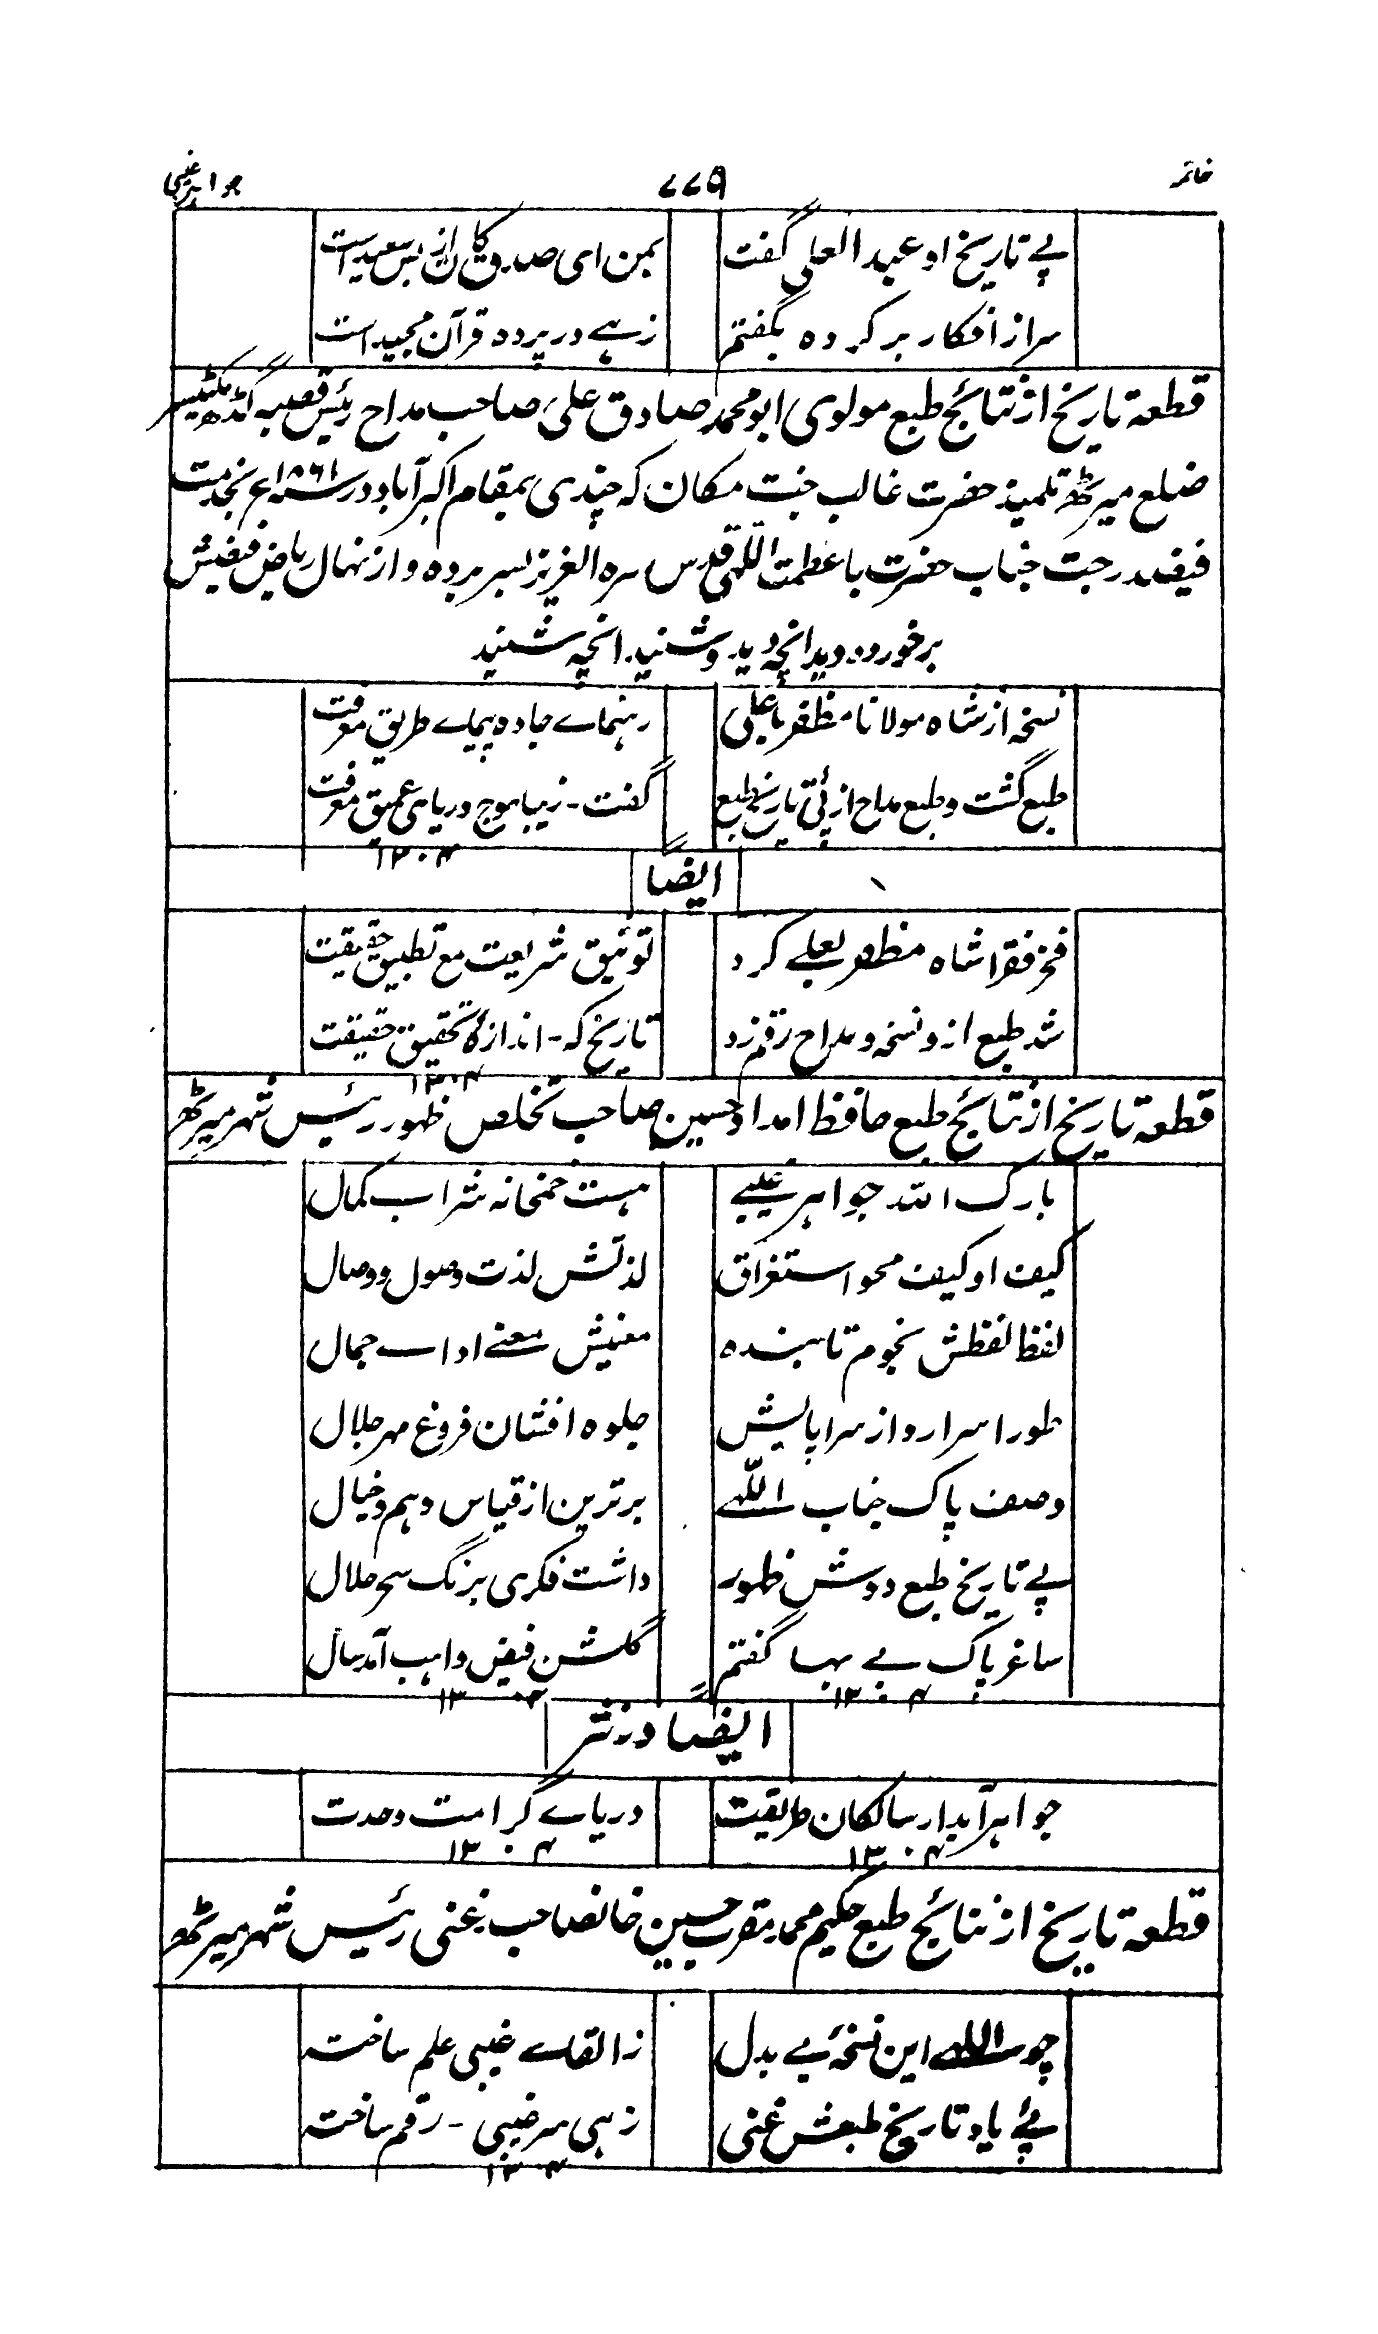 خاتمہ ۷۷۹ جواہر غیبی
پے تاریخ او عبد العلی گفت بمن ای صادق کان از بس سعید است
سر از افکار بر کرده بگفتم زہے در پرده قرآن مجید است
قطعۂ تاریخ از نتائج طبع مولوی ابو محمد صادق علی صاحب مداح رئیس قصبہ گڈھ مکٹیسر
ضلع میرٹھ تلمیذ حضرت غالب جنت مکان کہ چندی بمقام اکبرآباد در ۱۸۶۱ء بخدمت
فیضدرجت جناب حضرت با عظمت اللّٰہی قدس سره العزیز بسر برده و از نہال ریاض فیضش
برخورده دید انچہ دید و شنید انچہ شنید
نسخہ از شاه مولانا مظفر با علی رہنماے جاده پیماے طریق معرفت
طبع گشت و طبع مداح از پئی تاریخ طبع گفت - زیبا موج دریای عمیق معرفت
۱۳۰۴
ایضاً
فخر فقرا شاه مظفر بعلے کرد توثیق شریعت مع تطبیق حقیقت
شد طبع ازو نسخہ و مداح رقم زد تاریخ کہ - اندازۂ تحقیق حقیقت
۱۳۰۴
قطعۂ تاریخ از نتائج طبع حافظ امداد حسین صاحب تخلص ظہور رئیس شہر میرٹھ
بارک اللہ جواہر غیبے ہست خمخانہ شراب کمال
کیف او کیف محو استغراق لذتش لذت وصول و وصال
لفظ لفظش نجوم تابنده معنیش معنے اداے جمال
طور اسرار و از سراپایش جلوه افشان فروغ مہر جلال
وصف پاک جناب اللّٰہے برترین از قیاس و ہم و خیال
پے تاریخ طبع دوش ظہور داشت فکری برنگ سحر حلال
ساغر پاک بے بہا گفتم گلشن فیض واہب آمد سال
۱۳۰۴ ۱۳۰۴
ایضاً در نثر
جواہر آبدار سالکان طریقت دریاے کرامت وحدت
۱۳۰۴ ۱۳۰۴
قطعۂ تاریخ از نتائج طبع حکیم محمد مقرب حسین خانصاحب غنی رئیس شہر میرٹھ
چو اللّٰہے این نسخۂ بے بدل ز القاے غیبی علم ساختہ
پئے یاد تاریخ طبعش غنی زہی سر غیبی - رقم ساختہ
۱۳۰۴